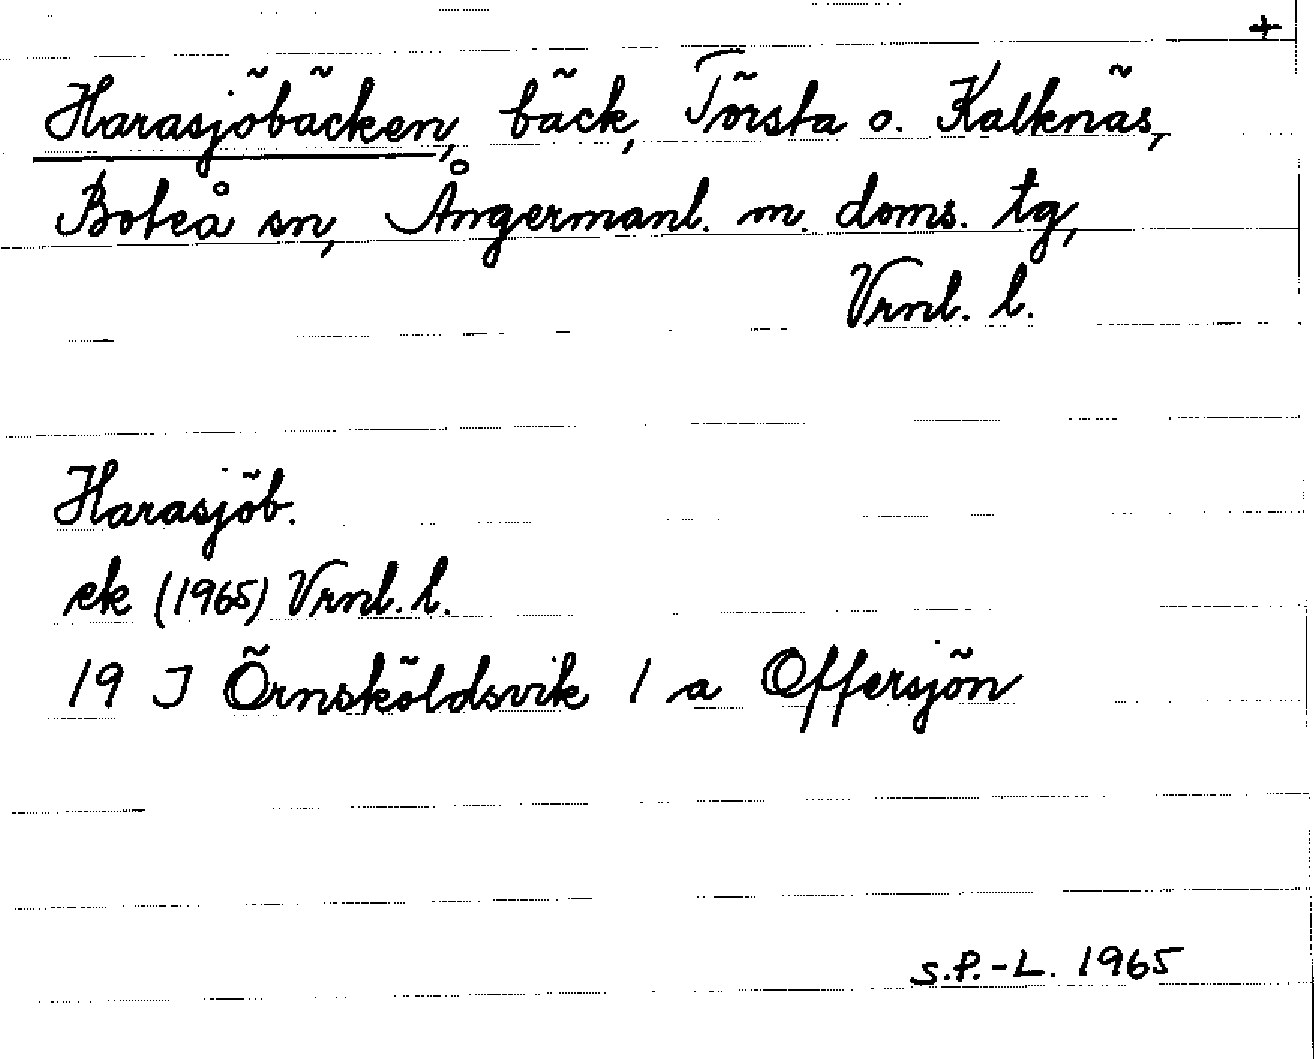 +
Harasjöbäcken, bäck, Törsta o. Kalknäs,
Boteå sn, Ångermanl. m. doms. tg,
Vrnl. l.
Harasjöb.
ek (1965) Vrnl. l.
19 J Örnsköldsvik 1 a Offersjön
S.P.-L. 1965